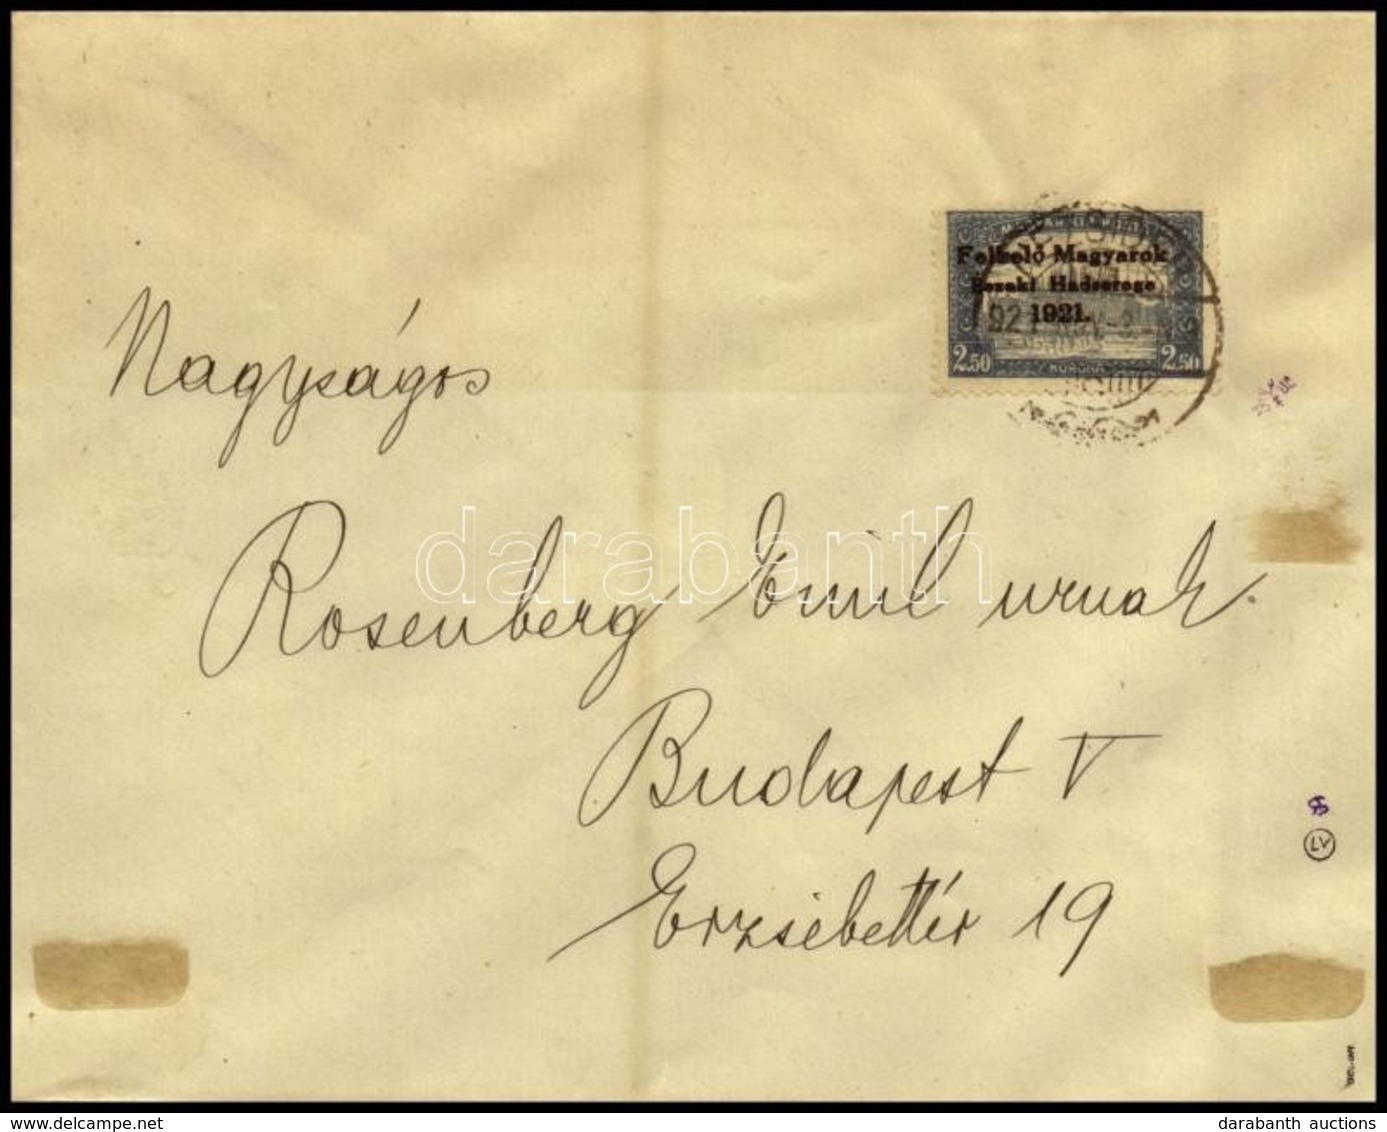 Felkelő Magyarok
Északi Hadserege
1921.
2.50 2.50
KORONA
Nagyságos
Rosenberg Emil urnak
darabanth
Budapest V
Erzsébettér 19
LV
delcampe.net
darabanth auctions